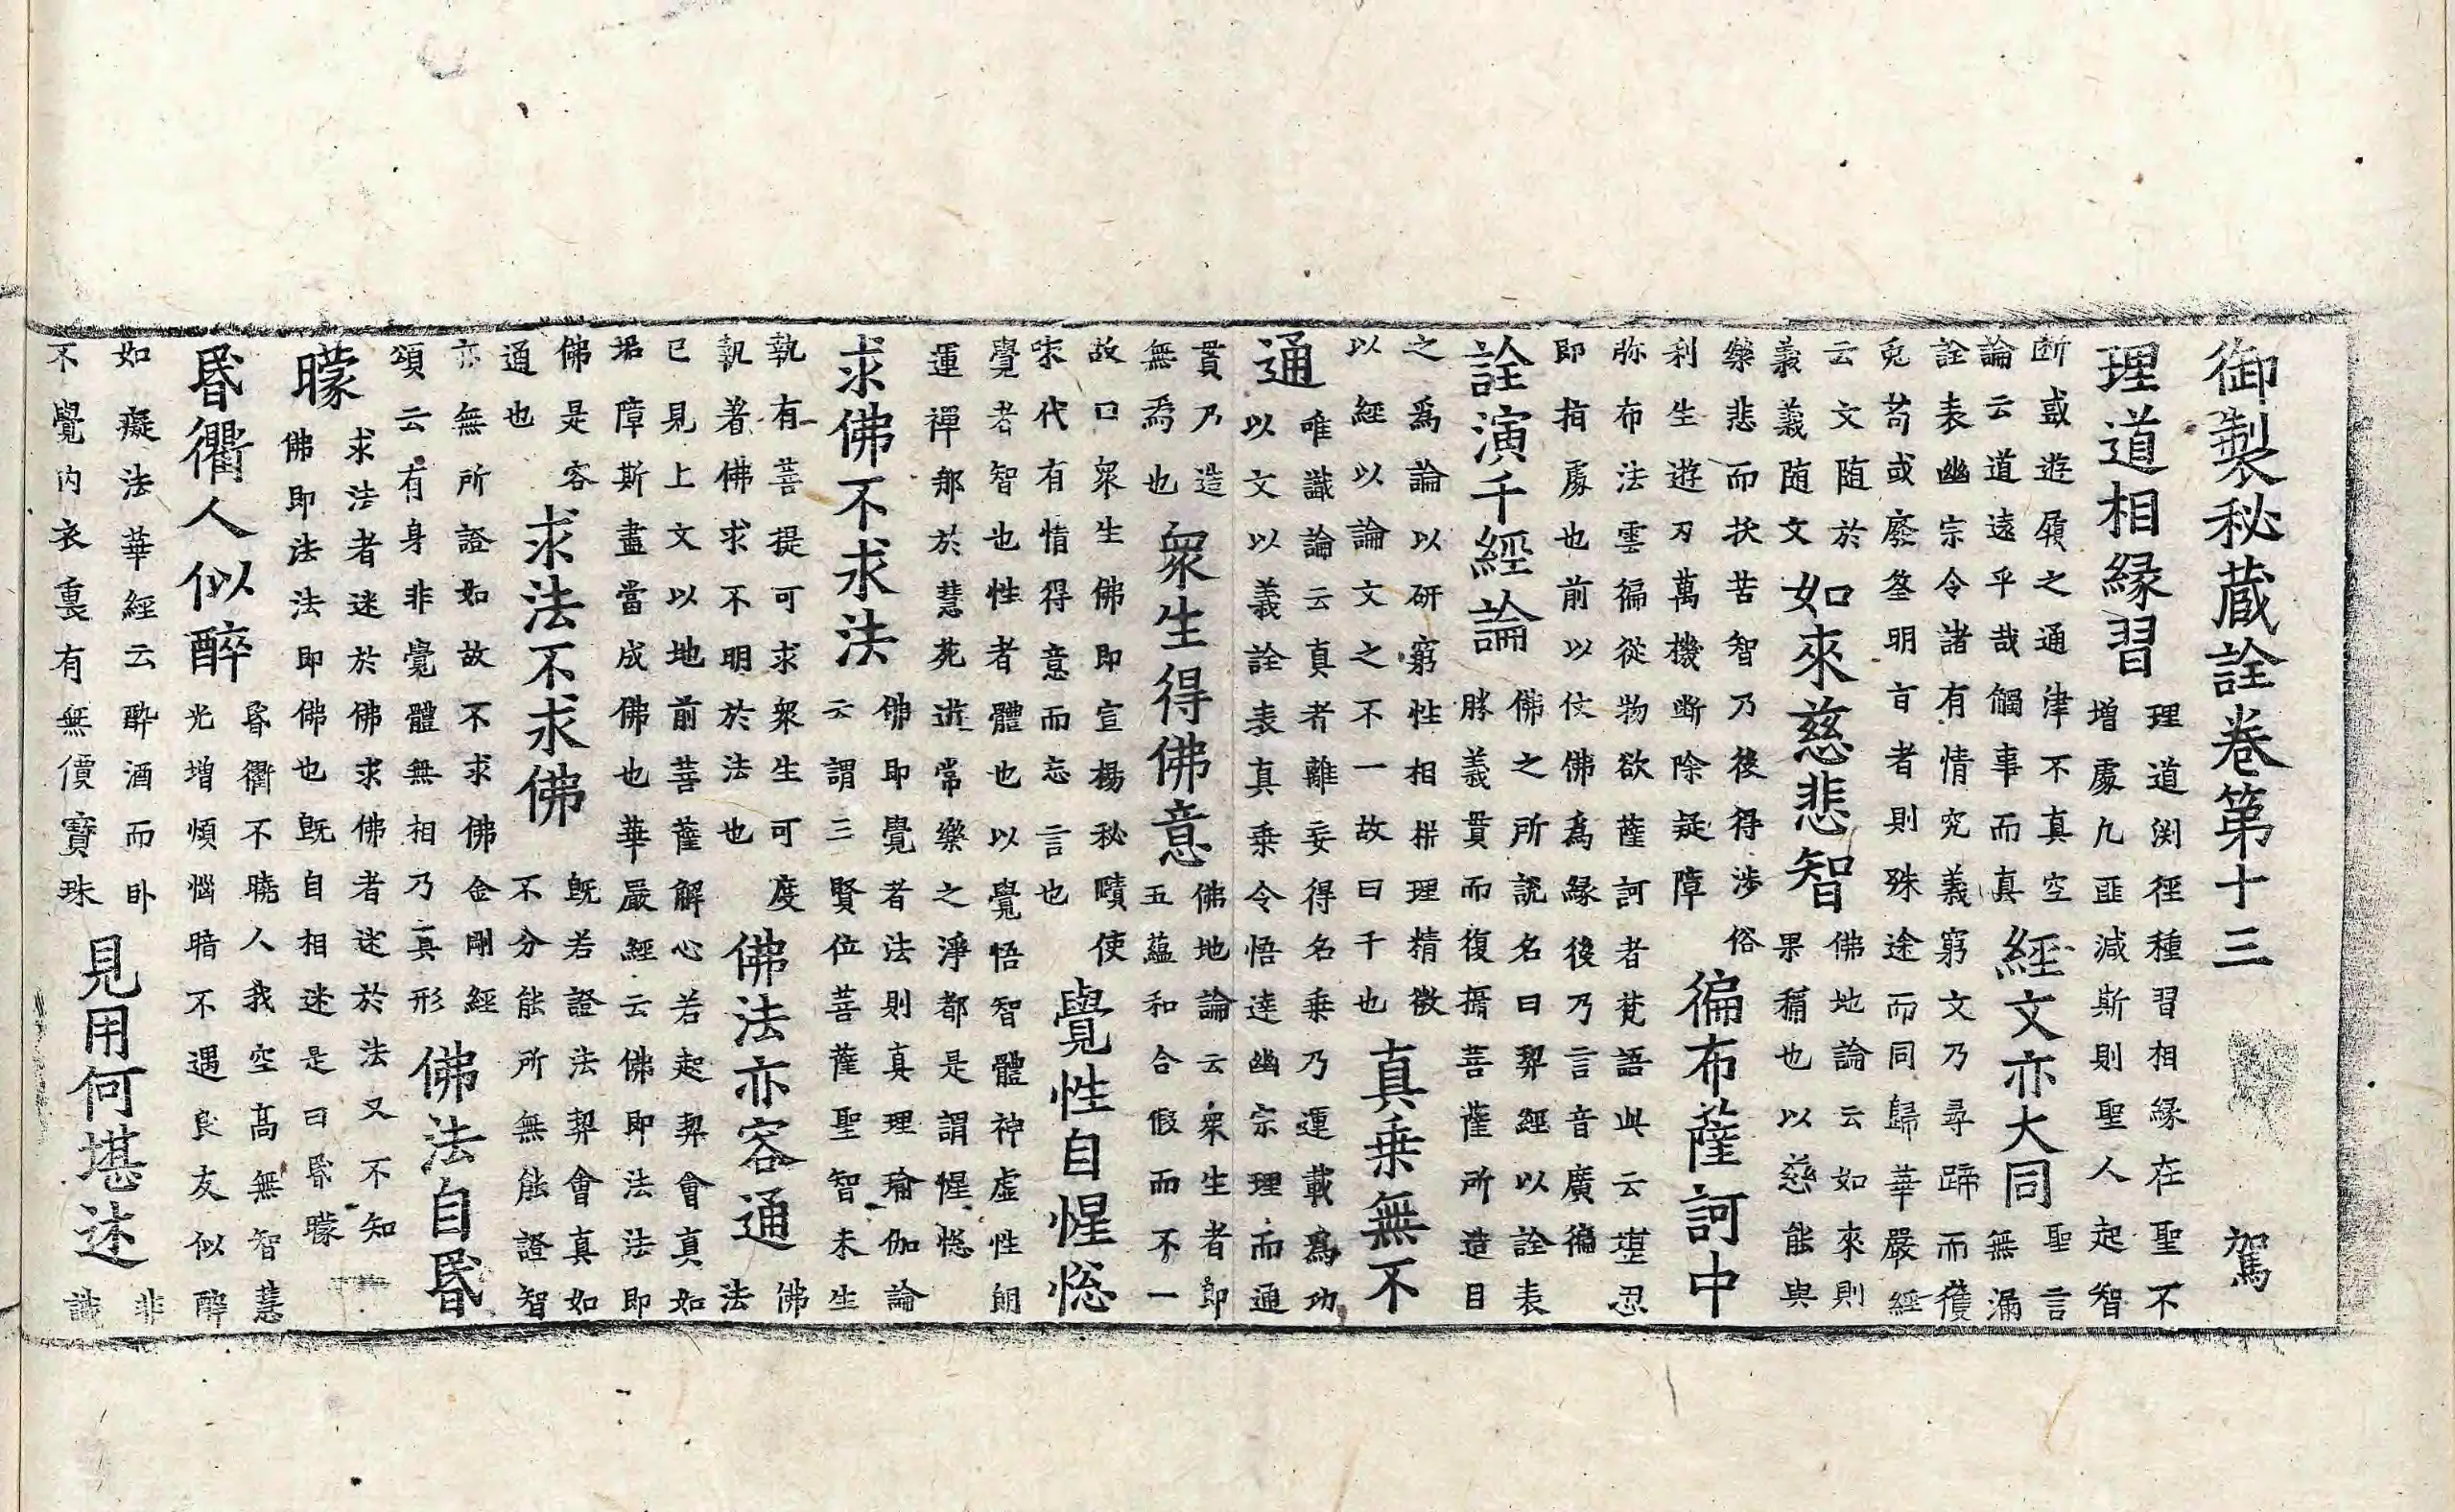 御製秘蔵詮卷第十三 駕
理道相縁習
理道渕徑種習相縁在聖不
增處九匪減斯則聖人起智
断或遊履之通津不真空
論云道遠乎哉觸事而真
經文亦大同
聖言
無漏
詮表幽宗令諸有情究義窮文乃尋蹄而獲
兎苟或廢筌明盲者則殊途而同歸華嚴經
云文随於
義義随文
如來慈悲智
佛地論云如來則
果稱也以慈能與
樂悲而扶苦智乃後得涉俗
利生遊刃萬機斷除疑障
徧布薩訶中
弥布法雲徧從物欲薩訶者梵語此云堪忍
即指處也前以仗佛為縁後乃言音廣徧
詮演千經論
佛之所說名曰契經以詮表
勝義貫而復搢菩薩所造目
之為論以研窮性相栟理精微
以經以論文之不一故曰千也
真乗無不
通
唯識論云真者離妄得名乗乃運載為功
以文以義詮表真乗令悟達幽宗理而通
貫乃造
無為也
衆生得佛意
佛地論云衆生者即
五蘊和合假而不一
故口衆生佛即宣揚秘賾使
末代有情得意而忘言也
覺性自惺惚
覺者智也性者體也以覺悟智體神虛性朗
運禪那於慧苑逰常樂之淨都是謂惺惚
求佛不求法
佛即覺者法則真理瑜伽論
云謂三賢位菩薩聖智未生
執有菩提可求衆生可度
執著佛求不明於法也
佛法亦容通
佛
法
已見上文以地前菩薩解心若起契會真如
垢障斯盡當成佛也華嚴經云佛即法法即
佛是容
通也
求法不求佛
既若證法契會真如
不分能所無能證智
亦無所證如故不求佛金剛經
頌云有身非覺體無相乃真形
佛法自昬
矇
求法者迷於佛求佛者迷於法又不知
佛即法法即佛也既自相迷是曰昬矇
昬衢人似醉
昬衢不曉人我空高無智慧
光增煩惱暗不遇良友似醉
如癡法華經云醉酒而卧
不覺内衣裏有無價寳珠
見用何堪述
非
識